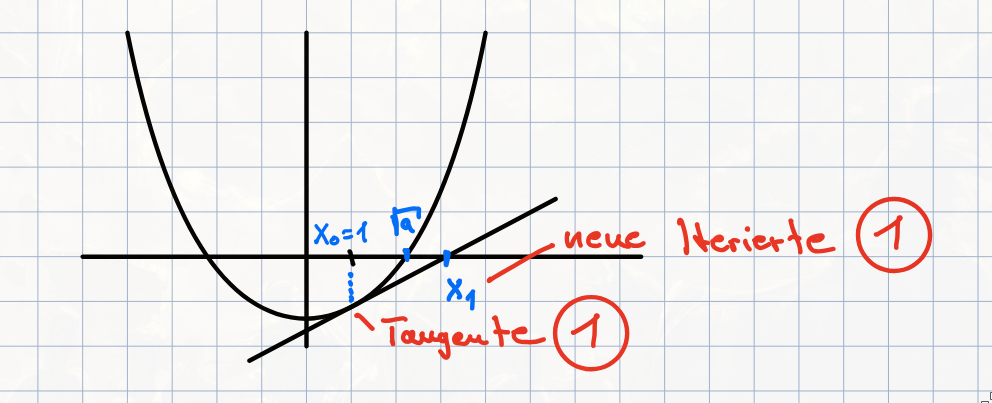 x₀=1 √a
neue Iterierte 1
x₁
Tangente 1